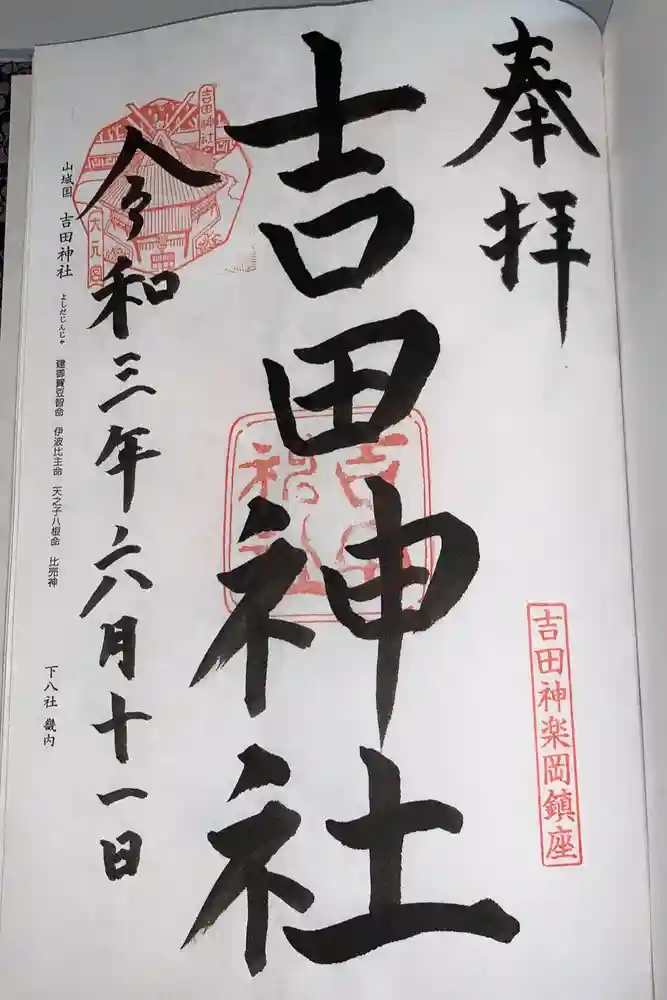 奉拝
吉田神楽岡鎮座
吉田神社
吉田神社
令和三年六月十一日
吉田神社
大元宮
山城国 吉田神社 よしだじんじゃ 建御賀豆智命 伊波比主命 天之子八根命 比売神 下八社 畿内